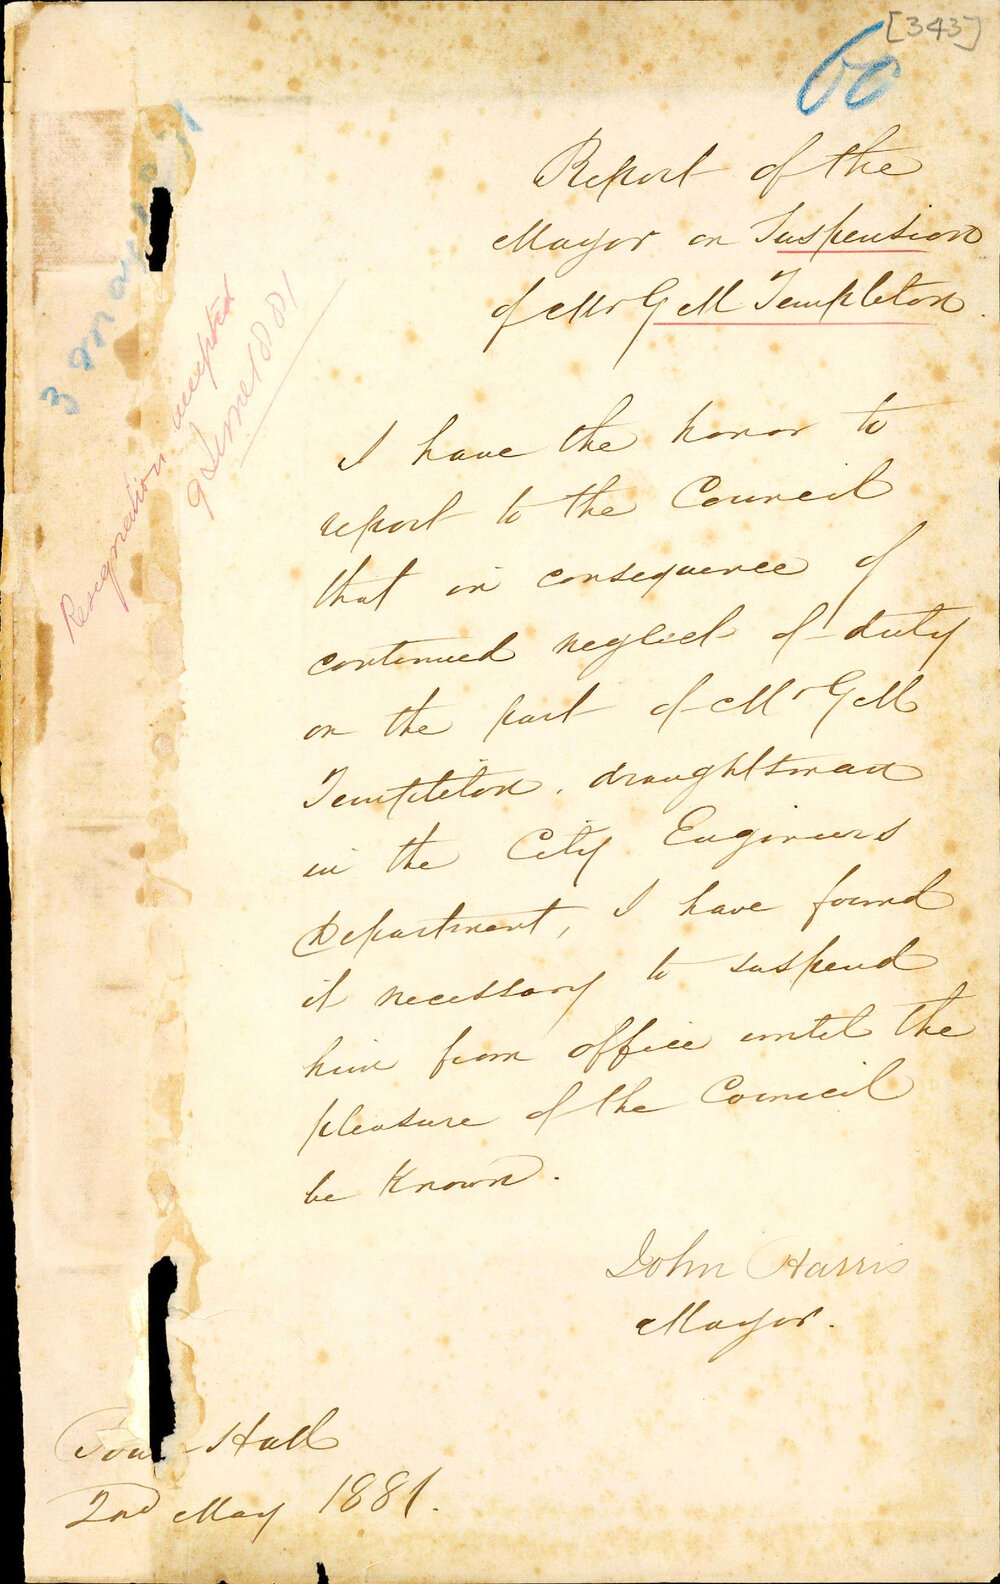 [343]
60
Report of the
Mayor on Suspension
of Mr G M Templeton.
Resignation accepted
9 June 1881
I have the honor to
report to the Council
that in consequence of
continued neglect of duty
on the part of Mr G M
Templeton, draughtsman
in the City Engineers
Department, I have found
it necessary to suspend
him from office until the
pleasure of the Council
be Known.
John Harris
Mayor.
Town Hall
2nd May 1881.